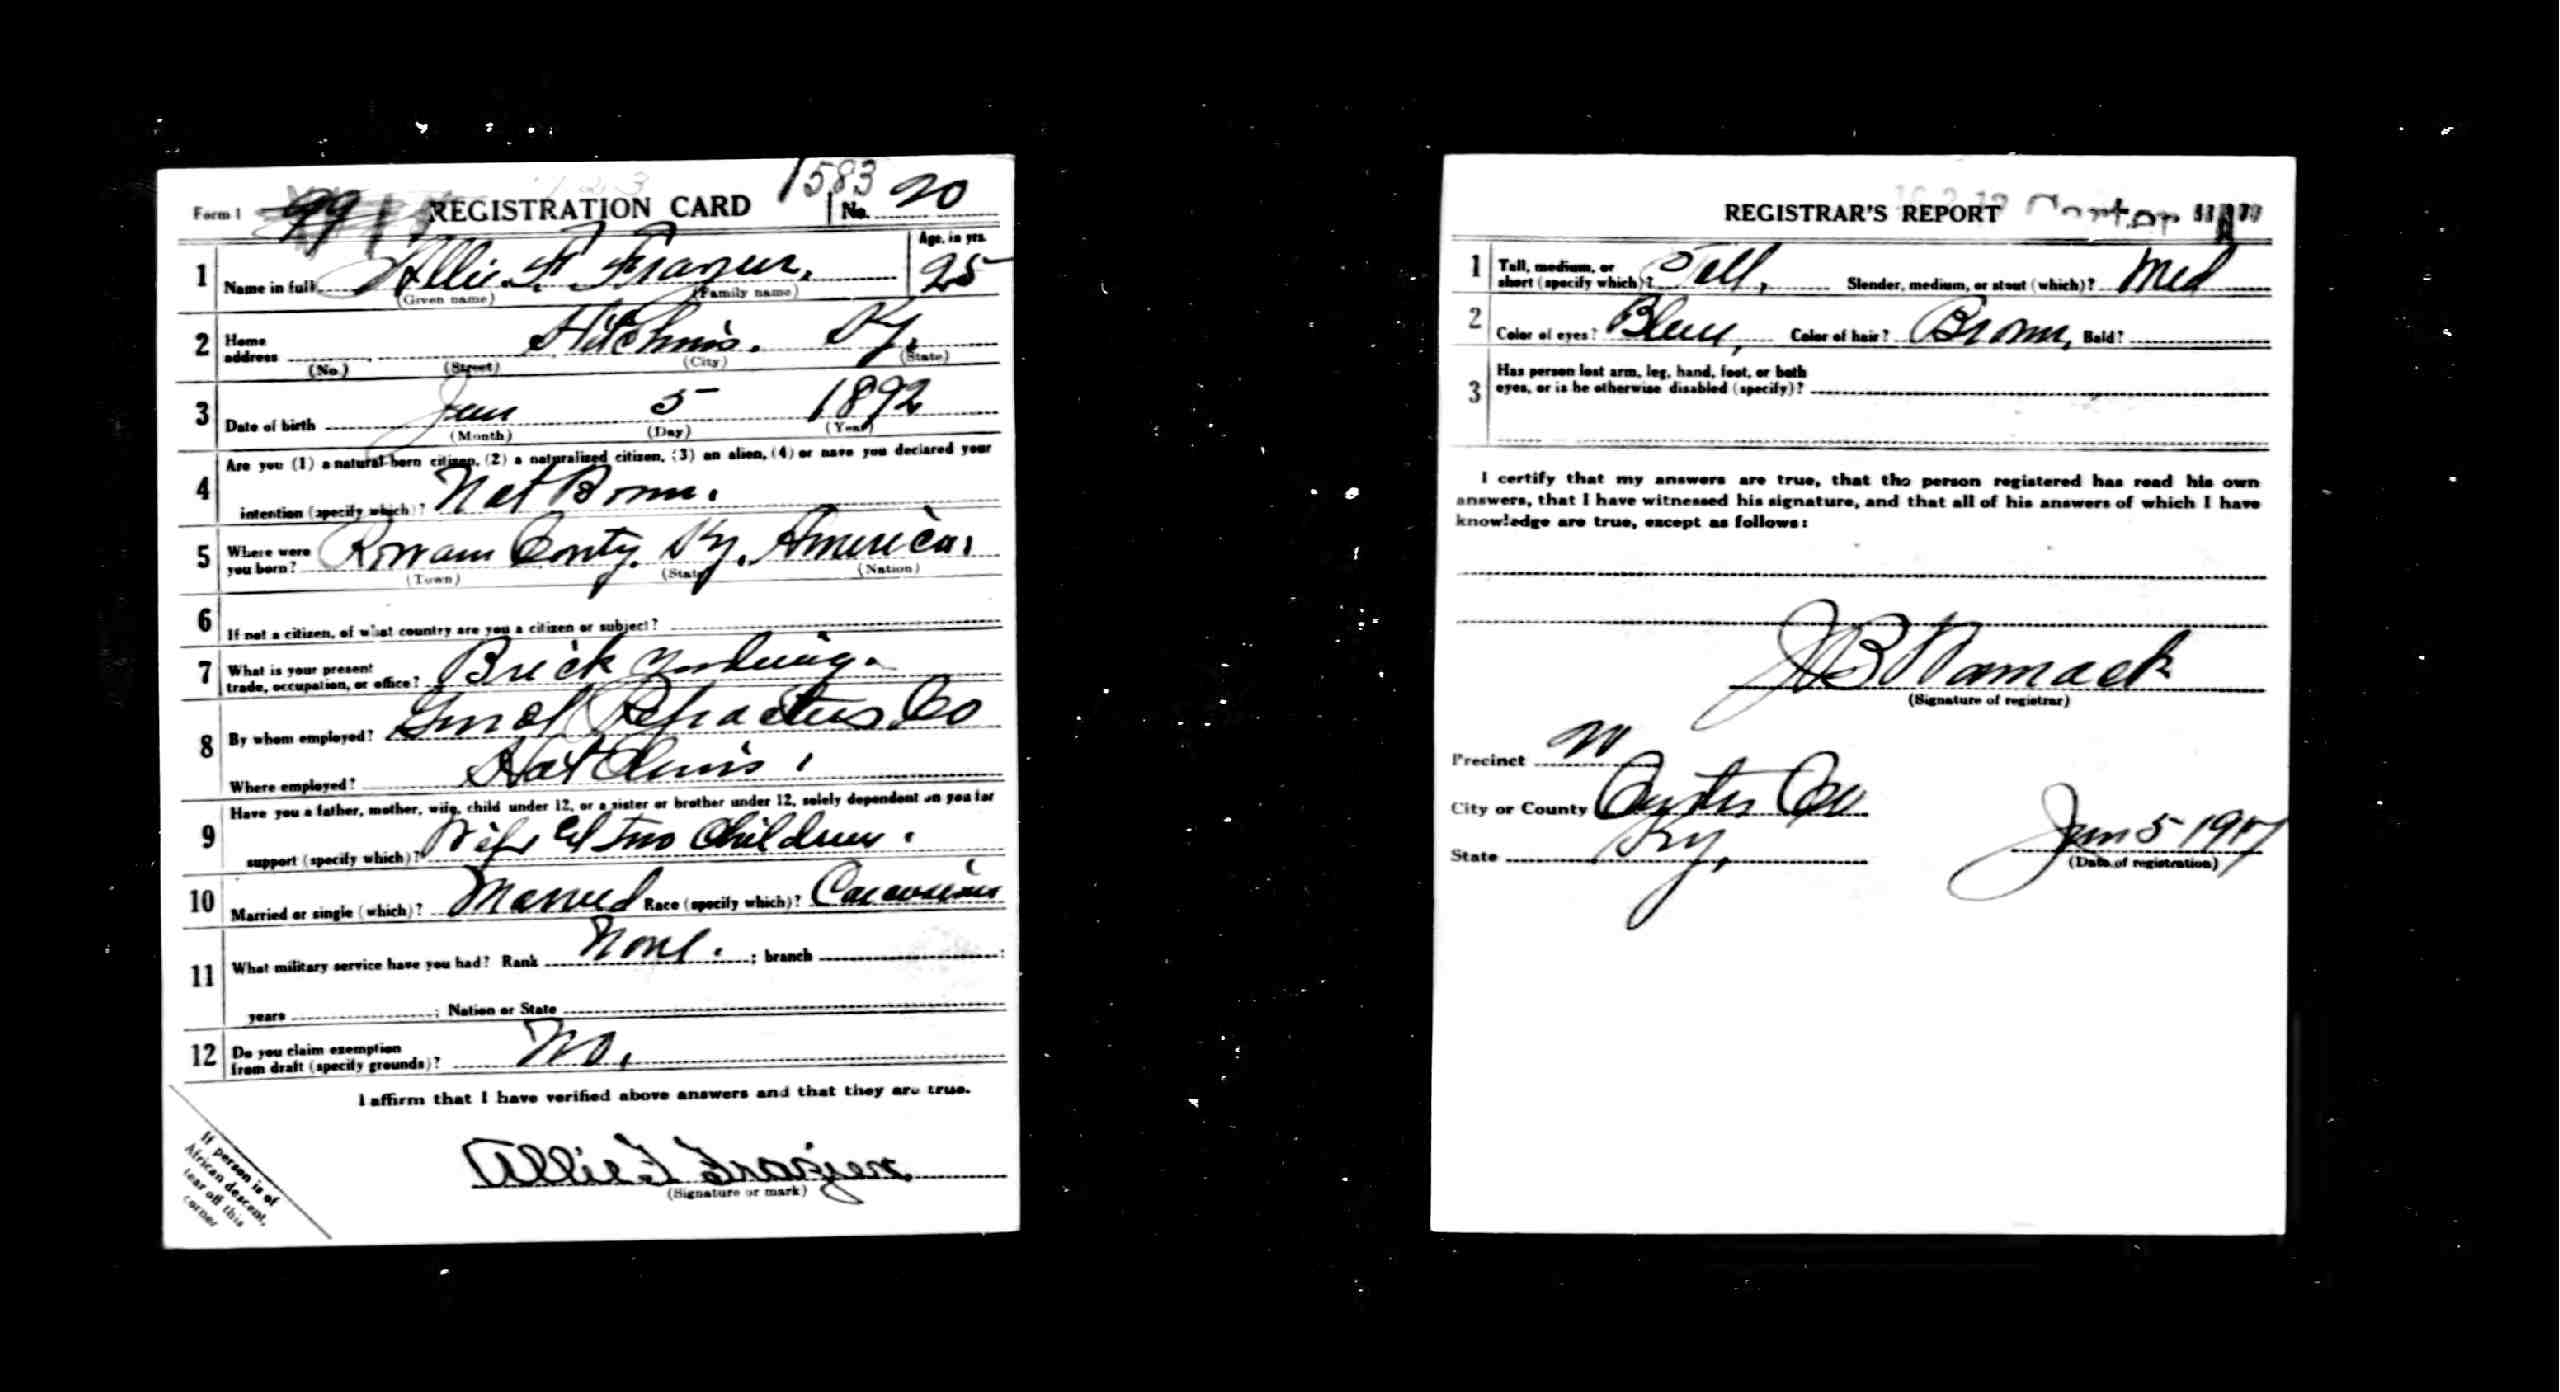 1583
Form 1 REGISTRATION CARD No. 20
1 Name in full Allie F. Frazier, Age, in yrs. 25
(Given name) (Family name)
2 Home address Hitchins. Ky.
(No.) (Street) (City) (State)
3 Date of birth Jan 5 1892
(Month) (Day) (Year)
Are you (1) a natural-born citizen, (2) a naturalized citizen, (3) an alien, (4) or have you declared your
4 intention (specify which)? Nat Born.
5 Where were you born? Rowan Conty. Ky. America.
(Town) (State) (Nation)
6 If not a citizen, of what country are you a citizen or subject?
7 What is your present trade, occupation, or office? Brick
8 By whom employed? Refracteries Co
Where employed? Hitchins.
Have you a father, mother, wife, child under 12, or a sister or brother under 12, solely dependent on you for
9 support (specify which)? Wife & Two Children.
10 Married or single (which)? Married Race (specify which)? Caucasian
11 What military service have you had? Rank None. ; branch ;
years ; Nation or State
12 Do you claim exemption from draft (specify grounds)? No.
I affirm that I have verified above answers and that they are true.
Allie F Frazier
(Signature or mark)
If person is of
African descent,
tear off this
corner
REGISTRAR'S REPORT
1 Tall, medium, or short (specify which)? Tall, Slender, medium, or stout (which)? Med
2 Color of eyes? Blue, Color of hair? Brown, Bald?
3 Has person lost arm, leg, hand, foot, or both
eyes, or is he otherwise disabled (specify)?
I certify that my answers are true, that the person registered has read his own
answers, that I have witnessed his signature, and that all of his answers of which I have
knowledge are true, except as follows:
J B Womack
(Signature of registrar)
Precinct
City or County Carter Co
State Ky, Jun 5 1917
(Date of registration)